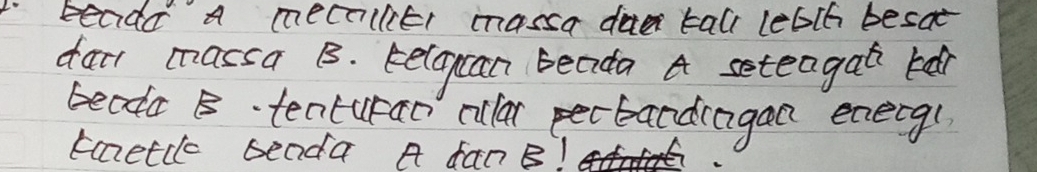 benda A memiliki massa dua kali lebih besar
dari massa B. kelajuan benda A setengah kali
benda B. tentukan nilai perbandingan energi
kinetik benda A dan B!